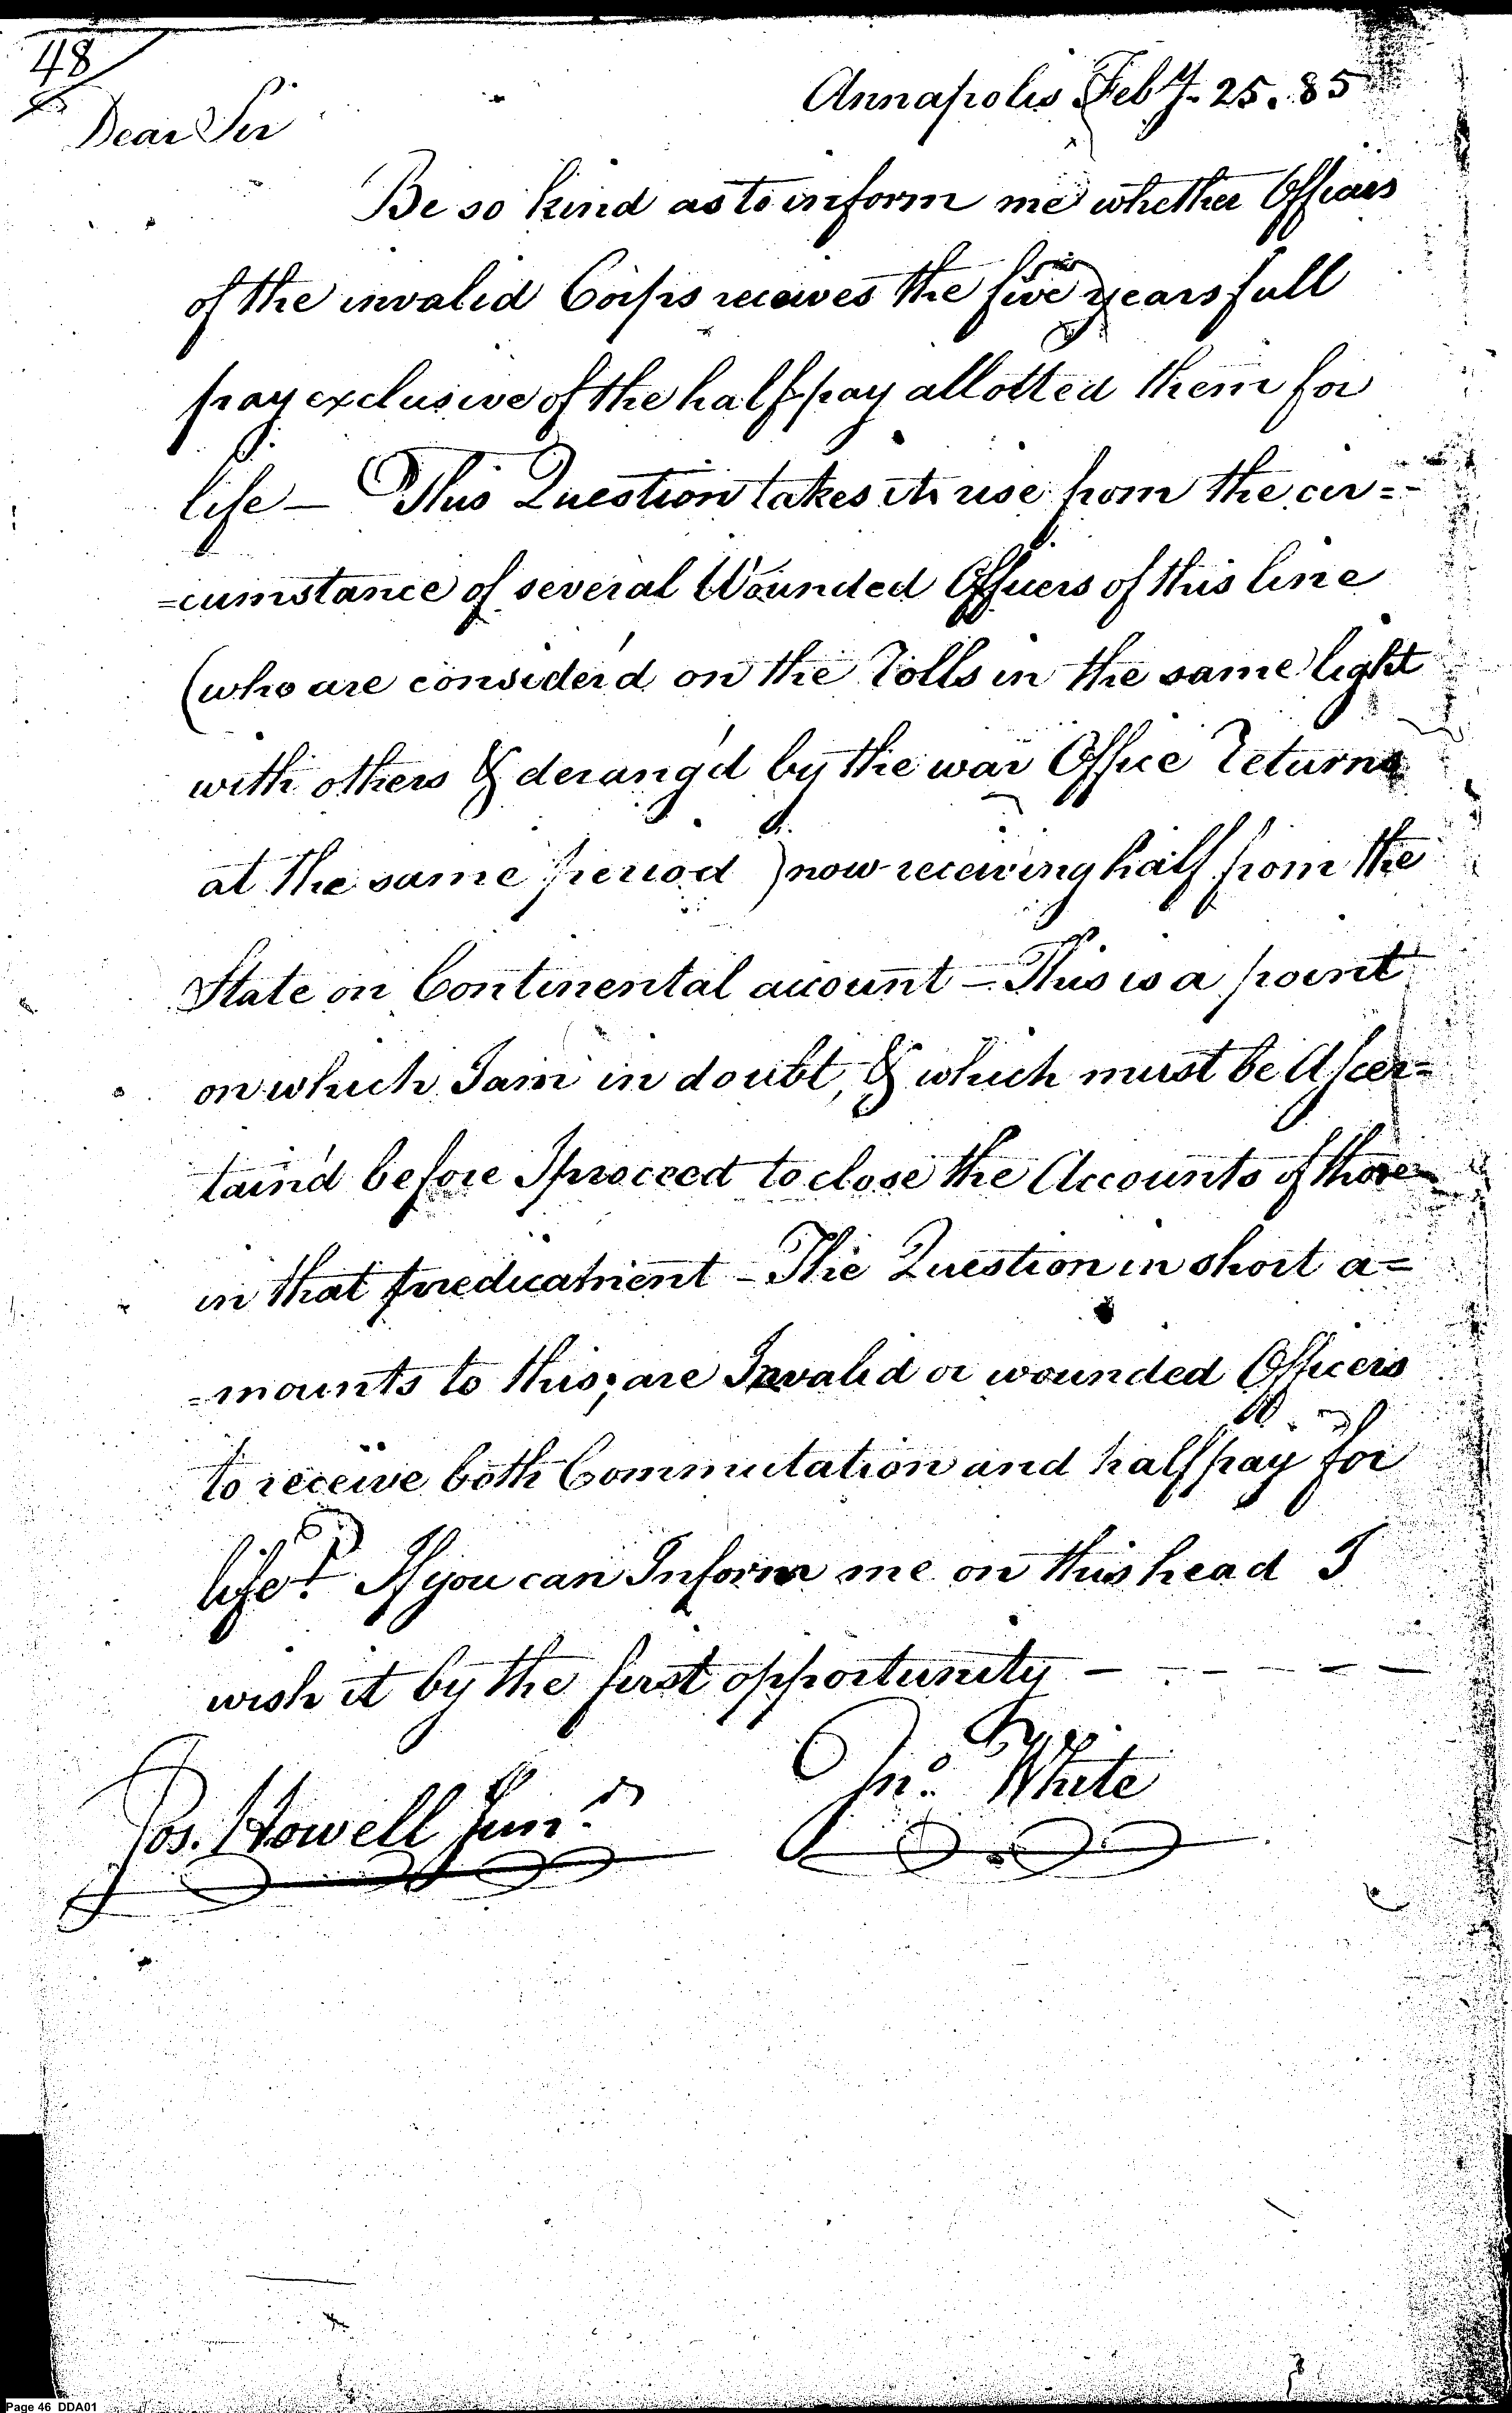 48
Annapolis Feby. 25. 85
Dear Sir
Be so kind as to inform me whether Officers
of the invalid Corps receives the five years full
pay exclusive of the half pay allotted them for
life — This Question takes its rise from the cir=
=cumstance of several Wounded Officers of this line
(who are consider'd on the Rolls in the same light
with others & derang'd by the war Office Returns
at the same period ) now receiving half from the
State on Continental account — This is a point
on which I am in doubt, & which must be Ascer=
tain'd before I proceed to close the Accounts of those
in that predicament — The Question in short a=
=mounts to this; are Invalid or wounded Officers
to receive both Commutation and half pay for
life? If you can Inform me on this head I
wish it by the first opportunity — - - - - —
Jno. White
Jos. Howell Junr.
Page 46 DDA01